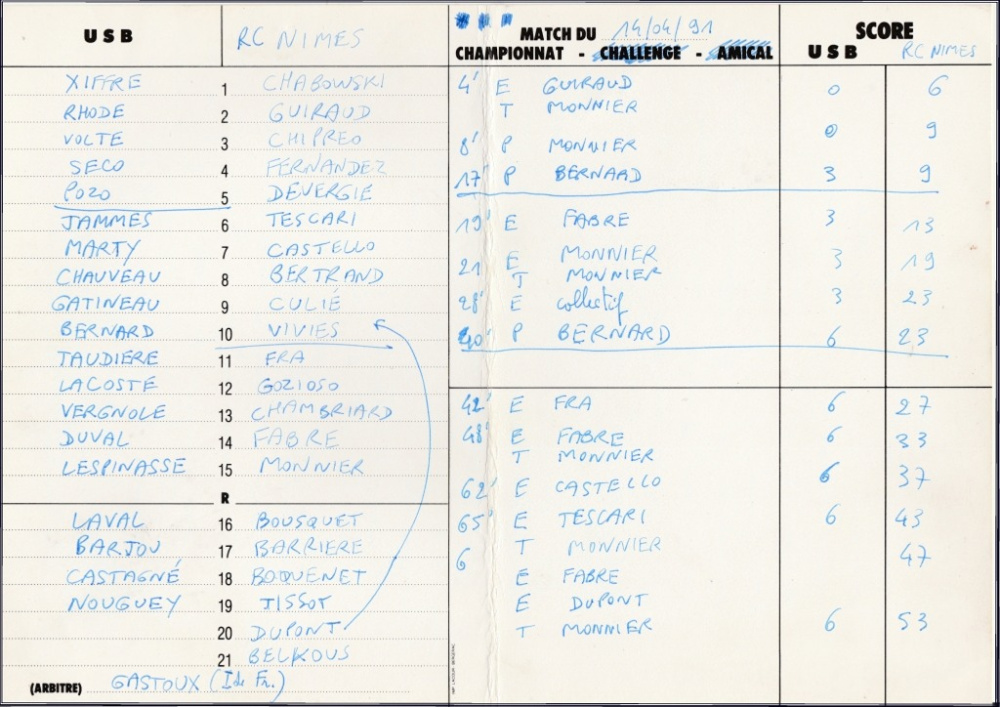 USB RC NIMES
XIFFRE 1 CHABOWSKI
RHODE 2 GUIRAUD
VOLTE 3 CHIPREO
SECO 4 FERNANDEZ
POZO 5 DEVERGIE
JAMMES 6 TESCARI
MARTY 7 CASTELLO
CHAUVEAU 8 BERTRAND
GATINEAU 9 CULIÉ
BERNARD 10 VIVIES
TAUDIERE 11 FRA
LACOSTE 12 GOZIOSO
VERGNOLE 13 CHAMBRIARD
DUVAL 14 FABRE
LESPINASSE 15 MONNIER
R
LAVAL 16 BOUSQUET
BARJOU 17 BARRIERE
CASTAGNÉ 18 BOQUENET
NOUGUEY 19 TISSOT
20 DUPONT
21 BELKOUS
(ARBITRE) GASTOUX (I de Fr.)
MATCH DU 14/04/91 SCORE
CHAMPIONNAT - CHALLENGE - AMICAL USB RC NIMES
4' E GUIRAUD 0 6
T MONNIER
8' P MONNIER 0 9
17' P BERNARD 3 9
19' E FABRE 3 13
21 E MONNIER 3 19
T MONNIER
28' E collectif 3 23
40' P BERNARD 6 23
42' E FRA 6 27
48' E FABRE 6 33
T MONNIER
62' E CASTELLO 6 37
65' E TESCARI 6 43
T MONNIER
6 E FABRE 47
E DUPONT
T MONNIER 6 53